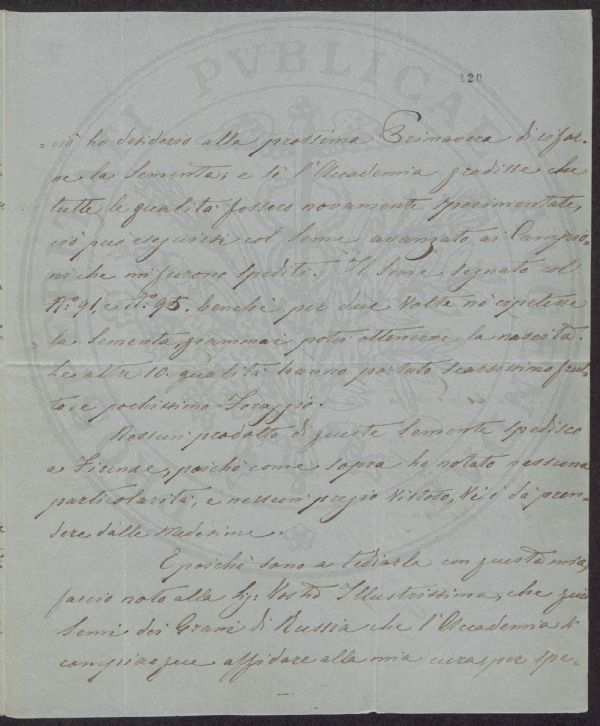 120
-ciò ho desiderio alla prossima Primavera di rifar-
ne la Sementa; e se l'Accademia gradisse che
tutte le qualità fossero novamente sperimentate,
ciò può eseguirsi col Seme avanzato ai Campio-
ni che mi furono spediti. Il Seme segnato col
N.° 91, e N.° 95. benchè per due volte nè ripetesse
la Sementa, giammai potei ottenerne la nascita.
Le altre 10. qualità hanno portato scarsissimo frut-
to, e pochissimo Foraggio.
Nessun prodotto di queste Semente spedisco
a Firenze, poichè come sopra ho notato nessuna
particolarità, e nessun pregio vistoto, vi è da pren-
dere dalle medesime.
E poichè sono a tediarla con questa mia,
faccio noto alla Sig: Vostra Illustrissima, che quei
Semi dei Grani di Russia che l'Accademia si
compiacque affidare alla mia cura, per spe-